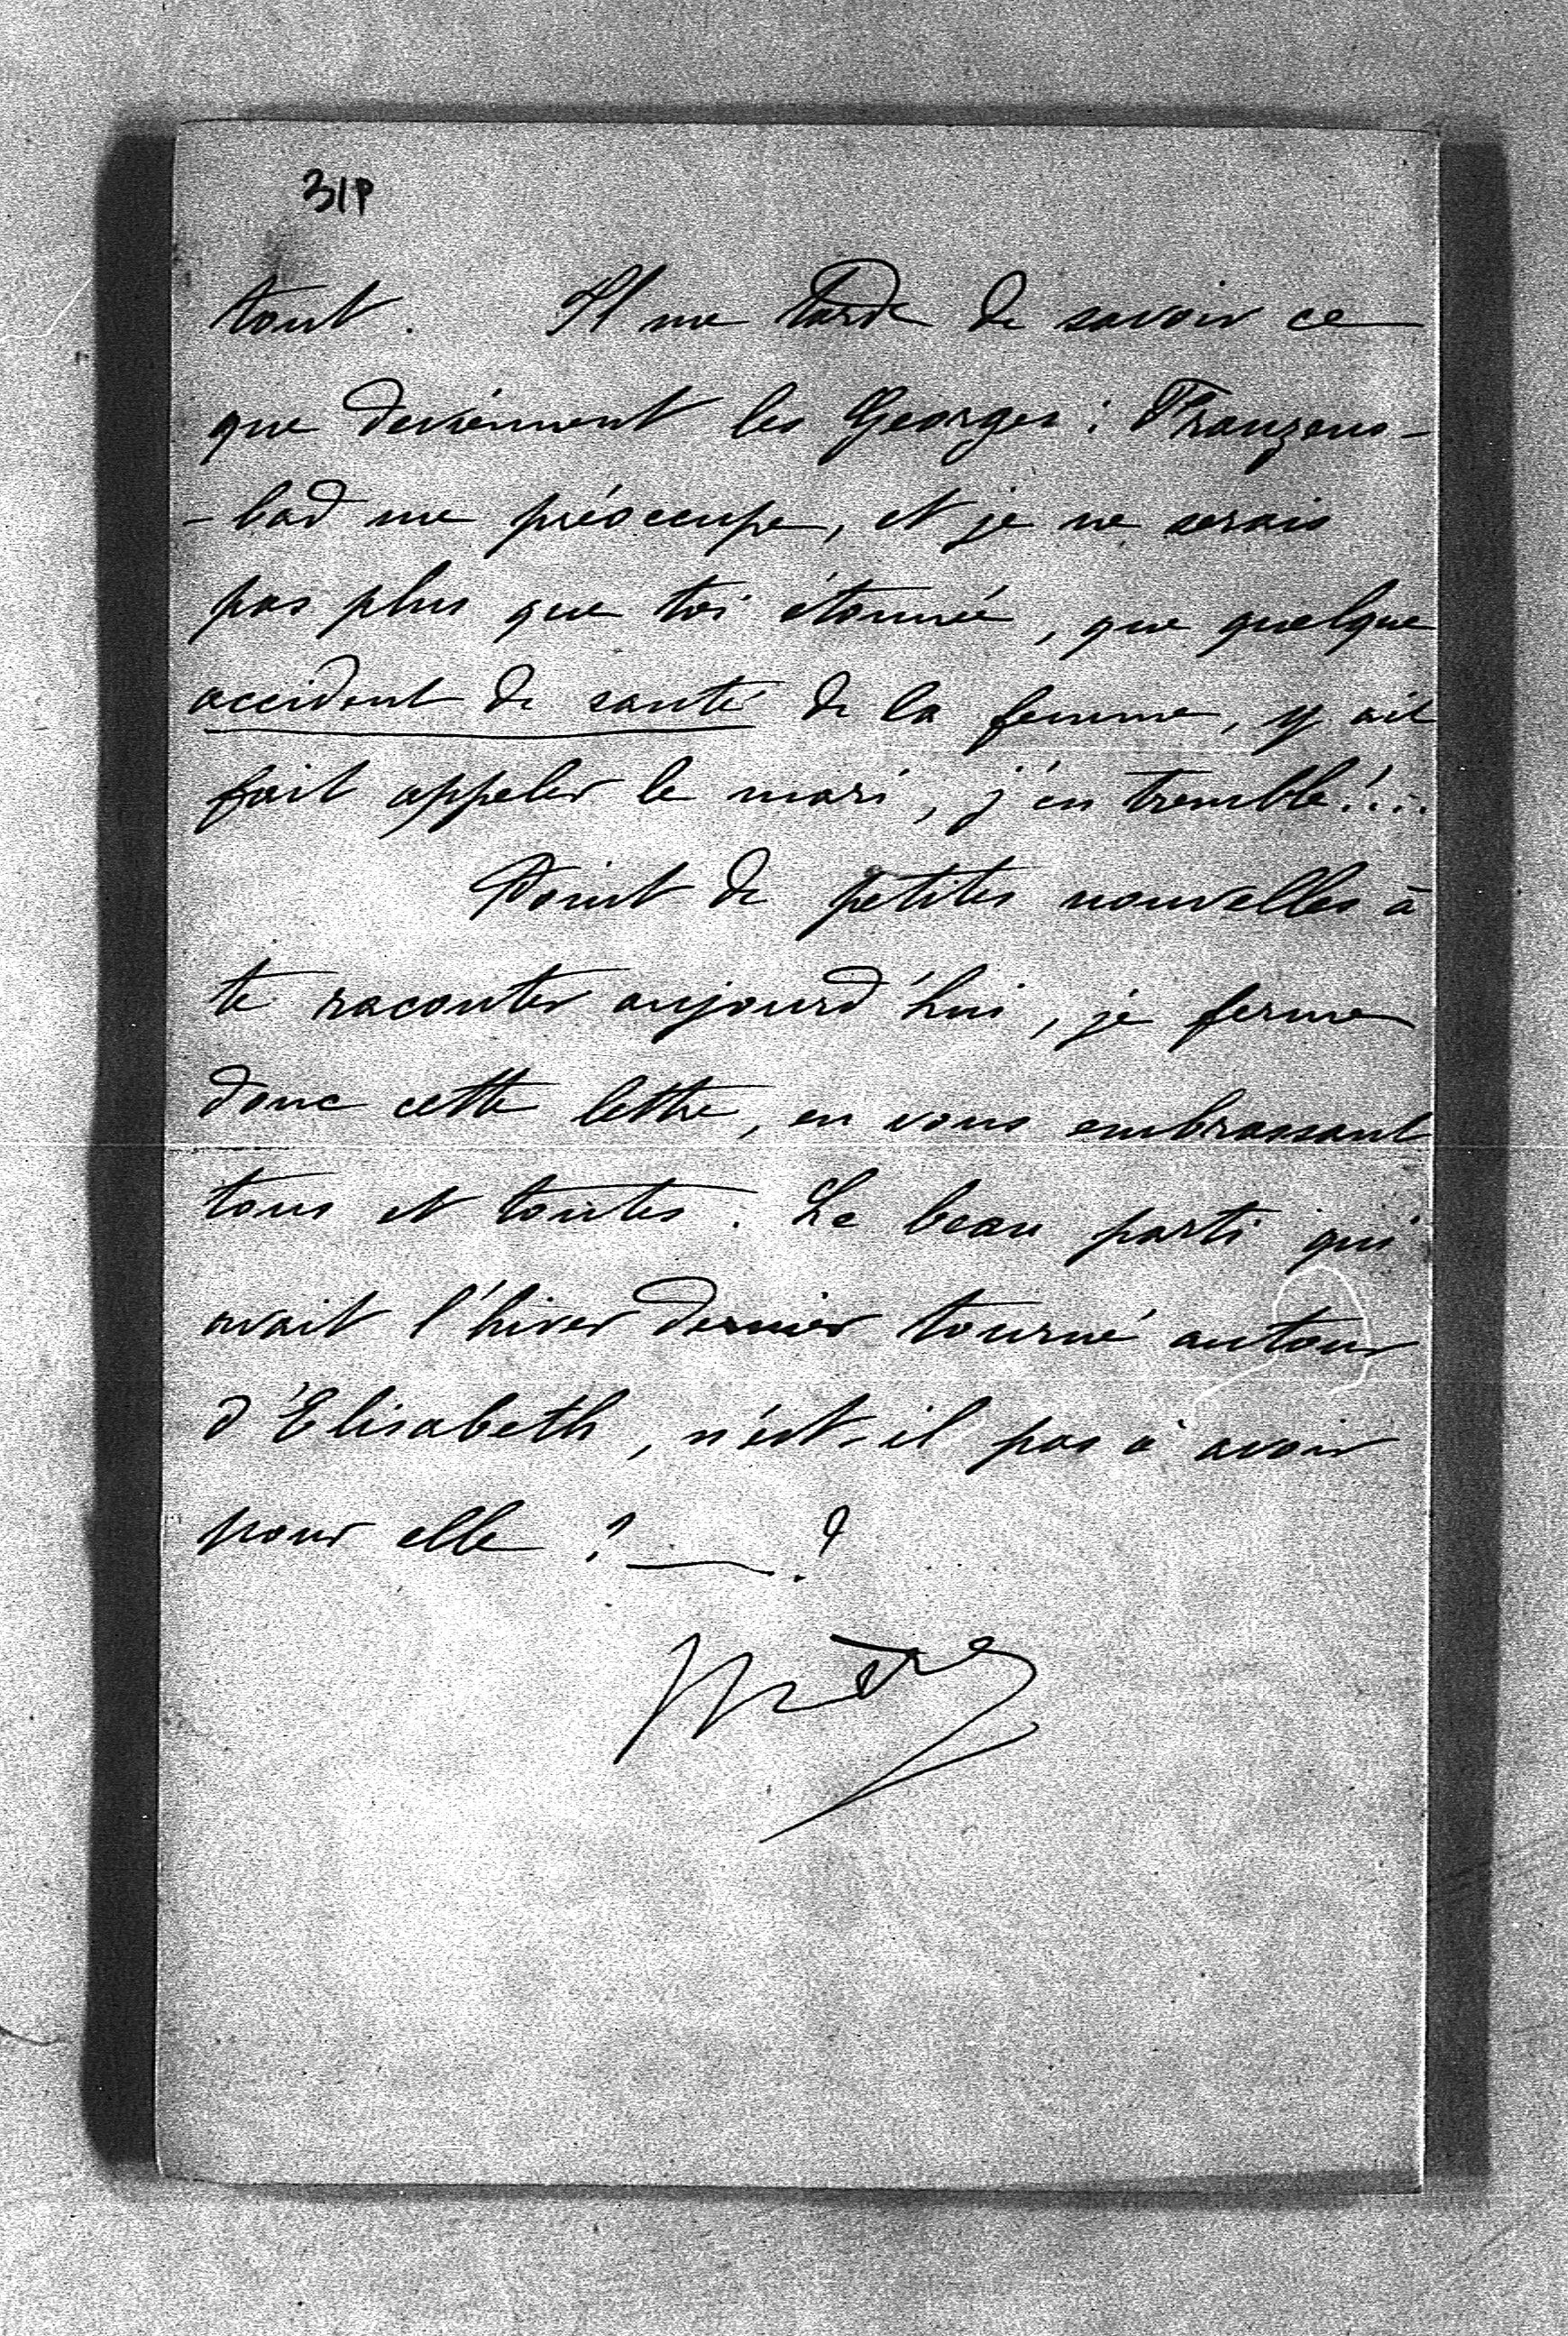 31P
tout. Il me tarde de savoir ce
que deviennent les Georges : Franzens-
-bad me préoccupe, et je ne serais
pas plus que toi étonnée, que quelque
accident de santé de la femme, y ait
fait appeler le mari, j'en tremble!...
Point de petites nouvelles à
te raconter aujourd'hui, je ferme
donc cette lettre, en vous embrassant
tous et toutes. Le beau parti qui
avait l'hiver dernier tourné autour
d'Elisabeth, n'est-il pas à avoir
pour elle ? — ?